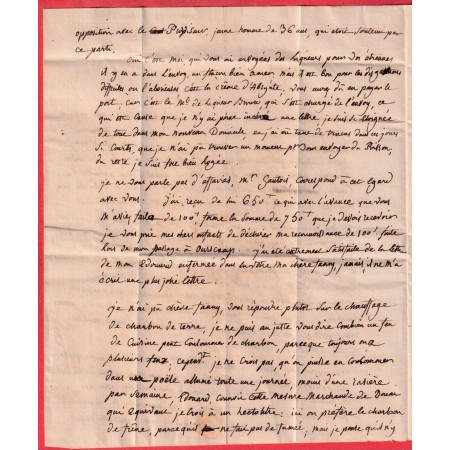 opposition avec le Puyseur, jeune homme de 36 ans, qui etoit soutenu par
ce parti.
Oui c'est moi, qui vous ai envoyées des Liqueurs pour vos étrennes
il y en a dans l'envoy, un flacon bien amer, mais il est bon pour les digestions
difficiles ou l'absences c'est la crême d'absynte, vous aurez dû en payer le
port, car c'est le Md de Liqueur qui s'est chargé de l'envoy, ce
qui est cause que je n'y ai point une lettre, je suis si éloignée
de tout dans mon nouveau Domicile, en j'ai eu tant de tracas dans ces jours
si courts, que je n'ai pu trouver un moment pr Vous envoyer du Poisson,
du reste je suis fort bien logée.
je ne vous parle pas d'affaires, Mr Gautois correspond à cet égard
avec vous. j'ai reçu de lui 650# ce qui avec l'avance que vous
m'avez faite de 100# forme la somme de 750# que je devois recevoir
je vous prie mes chers enfants de déchirer ma reconnoissance de 100# faite
lors de mon passage à j'ai été extremement satisfaite de la lettre
de mon Edouard enfermée dans la vôtre ma chere fanny, jamais il ne m'a
écrit une plus jolie lettre.
je n'ai pu chère fanny, vous répondre plutôt sur le chauffage
de charbon de terre, je ne puis au juste vous dire combien un feu
de cuisine peut consommer de charbon, parceque toujours on a
plusieurs feux, cependt je ne crois pas, qu'on puisse en consommer
dans un poële allumé toute une journée, moins d'une rasière
par semaine, Edouard, connoit cette mesure marchande de
qui équivaut je crois à un hectolitre; ici on préfère le charbon
de frêne, parcequ'il ne fait pas de fumée, mais je pense qu'il n'y